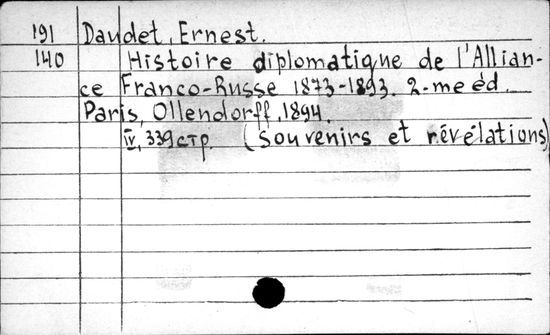 191 Daudet, Ernest.
140 Histoire diplomatique de l'Allian-
ce Franco-Russe 1873-1893. 2-me éd.
Paris, Ollendorff, 1894.
IV, 339 стр. (Souvenirs et révélations)